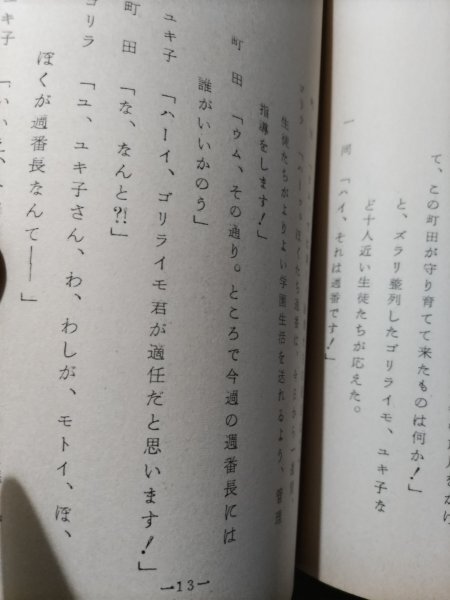 て、この町田が守り育てて来たものは何か！」
と、ズラリ整列したゴリライモ、ユキ子な
ど十人近い生徒たちが応えた。
一同　「ハイ、それは週番です！」
生徒たちがよりよい学園生活を送れるよう、管理
指導をします！」
町田　「ウム、その通り。ところで今週の週番長には
誰がいいかのう」
ユキ子　「ハーイ、ゴリライモ君が適任だと思います！」
町田　「な、なんと?!」
ゴリラ　「ユ、ユキ子さん、わ、わしが、モトイ、ぼ、
ぼくが週番長なんて――」
ユキ子
—13—